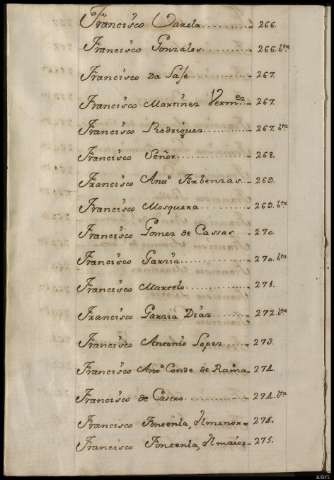 Francisco Varela ........ 266.
Francisco Gonzales ........ 266. bta
Francisco Da Pase ........ 267.
Francisco Martinez ........ 267.
Francisco Rodriguez ........ 267. bta
Francisco Señor ........ 268.
Francisco Anto Arbenzas ... 269.
Francisco Mosquera ........ 269. bta
Francisco Gomez de Cassas .. 270.
Francisco Garcia ........ 270. bta
Francisco Marcelo ........ 271.
Francisco Garcia Diaz ..... 272. bta
Francisco Antonio Lopez .... 273.
Francisco Anto Conde de 274.
Francisco de Castro ........ 274. bta
Francisco Fontenla, Menor .. 275.
Francisco Fontenla, Maior .. 275.